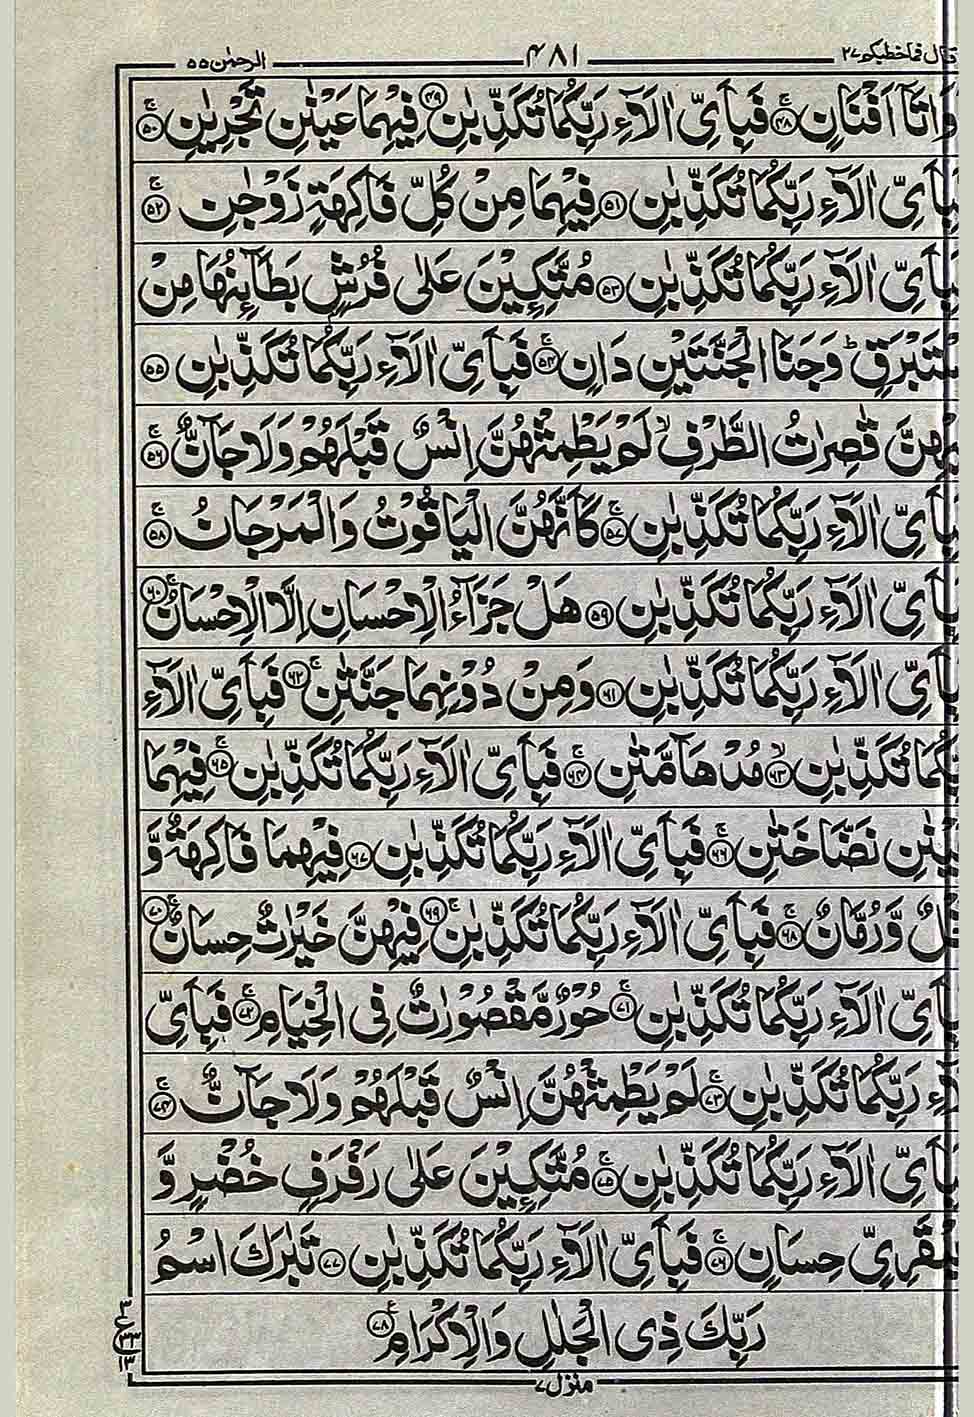 قال فما خطبكم ٢٧ ٤٨١ الرحمٰن ٥٥
ذَوَاتَآ اَفْنَانٍ ۚ﴿٤٨﴾ فَبِاَیِّ اٰلَآءِ رَبِّكُمَا تُكَذِّبٰنِ ﴿٤٩﴾ فِیْهِمَا عَیْنٰنِ تَجْرِیٰنِ ۚ﴿٥٠﴾
فَبِاَیِّ اٰلَآءِ رَبِّكُمَا تُكَذِّبٰنِ ﴿٥١﴾ فِیْهِمَا مِنْ كُلِّ فَاكِهَةٍ زَوْجٰنِ ۚ﴿٥٢﴾
فَبِاَیِّ اٰلَآءِ رَبِّكُمَا تُكَذِّبٰنِ ﴿٥٣﴾ مُتَّكِـِٕیْنَ عَلٰی فُرُشٍۭ بَطَآىِٕنُهَا مِنْ
اِسْتَبْرَقٍ ؕ وَجَنَا الْجَنَّتَیْنِ دَانٍ ۚ﴿٥٤﴾ فَبِاَیِّ اٰلَآءِ رَبِّكُمَا تُكَذِّبٰنِ ﴿٥٥﴾
فِیْهِنَّ قٰصِرٰتُ الطَّرْفِ ۙ لَمْ یَطْمِثْهُنَّ اِنْسٌ قَبْلَهُمْ وَلَا جَآنٌّ ۚ﴿٥٦﴾
فَبِاَیِّ اٰلَآءِ رَبِّكُمَا تُكَذِّبٰنِ ۚ﴿٥٧﴾ كَاَنَّهُنَّ الْیَاقُوْتُ وَالْمَرْجَانُ ۚ﴿٥٨﴾
فَبِاَیِّ اٰلَآءِ رَبِّكُمَا تُكَذِّبٰنِ ﴿٥٩﴾ هَلْ جَزَآءُ الْاِحْسَانِ اِلَّا الْاِحْسَانُ ۚ﴿٦٠﴾
فَبِاَیِّ اٰلَآءِ رَبِّكُمَا تُكَذِّبٰنِ ﴿٦١﴾ وَمِنْ دُوْنِهِمَا جَنَّتٰنِ ۚ﴿٦٢﴾ فَبِاَیِّ اٰلَآءِ
رَبِّكُمَا تُكَذِّبٰنِ ۙ﴿٦٣﴾ مُدْهَآمَّتٰنِ ۚ﴿٦٤﴾ فَبِاَیِّ اٰلَآءِ رَبِّكُمَا تُكَذِّبٰنِ ۚ﴿٦٥﴾ فِیْهِمَا
عَیْنٰنِ نَضَّاخَتٰنِ ۚ﴿٦٦﴾ فَبِاَیِّ اٰلَآءِ رَبِّكُمَا تُكَذِّبٰنِ ﴿٦٧﴾ فِیْهِمَا فَاكِهَةٌ وَّ
نَخْلٌ وَّرُمَّانٌ ۚ﴿٦٨﴾ فَبِاَیِّ اٰلَآءِ رَبِّكُمَا تُكَذِّبٰنِ ۚ﴿٦٩﴾ فِیْهِنَّ خَیْرٰتٌ حِسَانٌ ۚ﴿٧٠﴾
فَبِاَیِّ اٰلَآءِ رَبِّكُمَا تُكَذِّبٰنِ ۚ﴿٧١﴾ حُوْرٌ مَّقْصُوْرٰتٌ فِی الْخِیَامِ ۚ﴿٧٢﴾ فَبِاَیِّ
اٰلَآءِ رَبِّكُمَا تُكَذِّبٰنِ ۚ﴿٧٣﴾ لَمْ یَطْمِثْهُنَّ اِنْسٌ قَبْلَهُمْ وَلَا جَآنٌّ ۚ﴿٧٤﴾
فَبِاَیِّ اٰلَآءِ رَبِّكُمَا تُكَذِّبٰنِ ۚ﴿٧٥﴾ مُتَّكِـِٕیْنَ عَلٰی رَفْرَفٍ خُضْرٍ وَّ
عَبْقَرِیٍّ حِسَانٍ ۚ﴿٧٦﴾ فَبِاَیِّ اٰلَآءِ رَبِّكُمَا تُكَذِّبٰنِ ﴿٧٧﴾ تَبٰرَكَ اسْمُ
رَبِّكَ ذِی الْجَلٰلِ وَالْاِكْرَامِ ﴿٧٨﴾
٣
ع
٣٣
١٣
منزل ٧